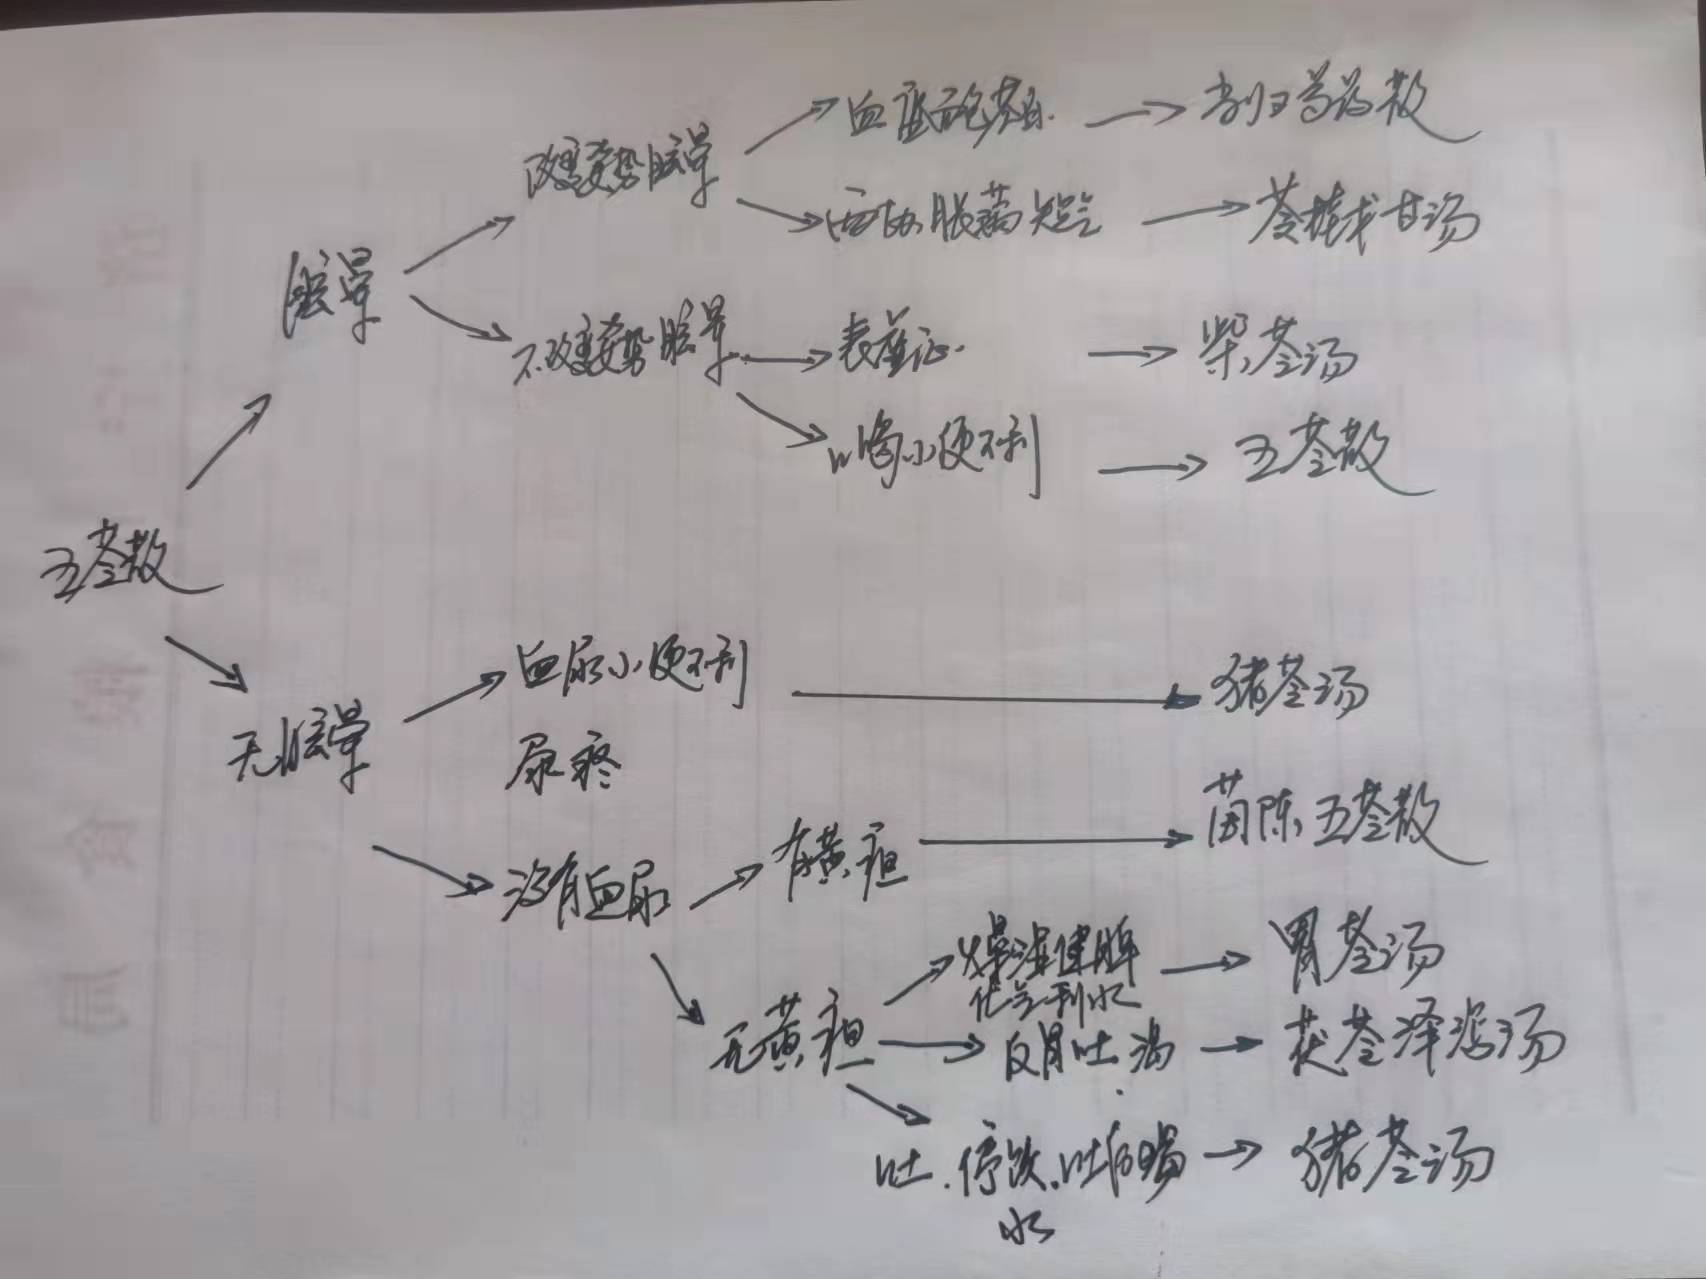 五苓散
眩晕
改变姿势眩晕
血
当归芍药散
胀满 短气
苓桂术甘汤
不改变姿势眩晕
表虚证.
柴苓汤
口渴小便不利
五苓散
无眩晕
血尿小便不利
尿疼
猪苓汤
没有血尿
有黄疸
茵陈五苓散
无黄疸
燥湿健脾
化气利水
胃苓汤
反胃吐 渴
茯苓泽泻汤
吐.停饮.吐后喝
水
猪苓汤